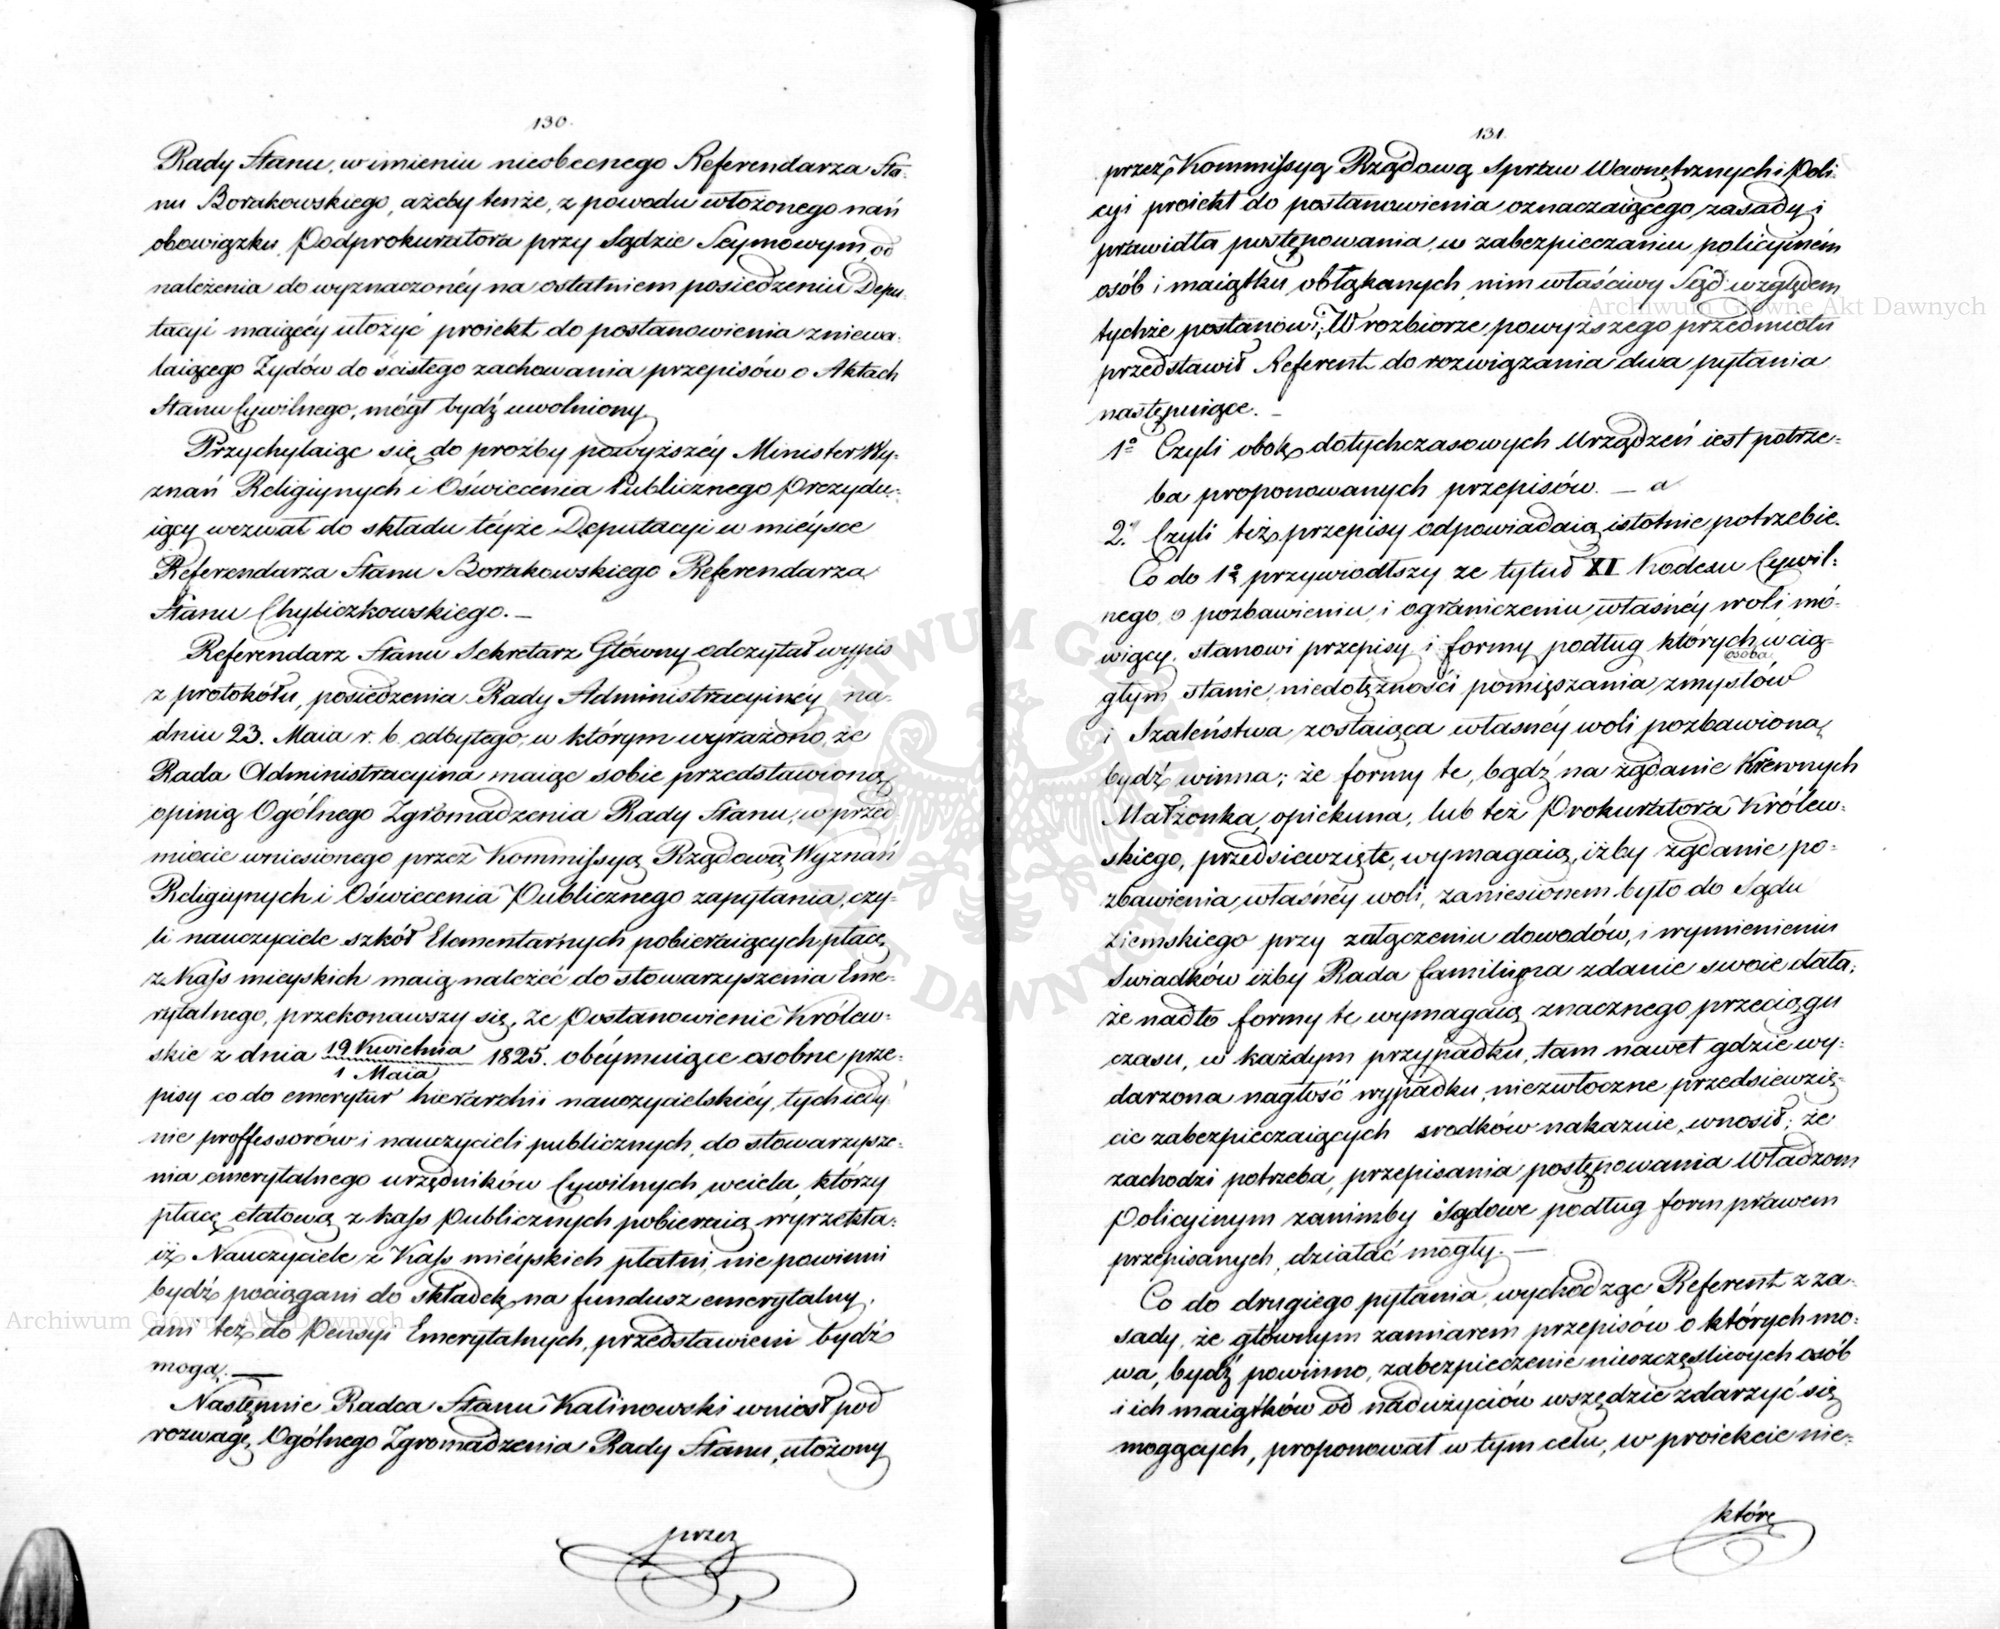 130.
Rady Stanu, w imieniu nieobecnego Referendarza Sta-
nu Borakowskiego, ażeby tenże, z powodu włożonego nań
obowiązku Podprokuratora przy Sądzie Seymowym, od
należenia do wyznaczonéy na ostatniem posiedzeniu Depu-
tacyi maiącéy ułożyć proiekt do postanowienia zniewa-
laiącego Żydów do ścisłego zachowania przepisów o Aktach
Stanu Cywilnego, mógł bydź uwolniony.
Przychylaiąc się do proźby powyższéy Minister Wy-
znań Religiynych i Oświecenia Publicznego Prezydu-
iący wezwał do składu téyże Deputacyi w mieysce
Referendarza Stanu Borakowskiego Referendarza
Stanu Chybiczkowskiego. —
Referendarz Stanu Sekretarz Główny odczytał wypis
z protokółu, posiedzenia Rady Administracyinéy na
dniu 23. Maia r. b. odbytego, w którym wyrażono, że
Rada Administracyina maiąc sobie przedstawioną
opinią Ogólnego Zgromadzenia Rady Stanu, w przed-
miocie wniesionego przez Kommissyą Rządową Wyznań
Religiynych i Oświecenia Publicznego zapytania, czy-
li nauczyciele szkół Elementarnych pobieraiących płacę
z Kass mieyskich maią należeć do stowarzyszenia Eme-
rytalnego, przekonawszy się, że Postanowienie Królew-
skie z dnia 19 Kwietnia / 1 Maia 1825. obéymuiące osobne prze-
pisy co do emerytur hierarchii nauczycielskiéy, tych iedy-
nie proffessorów i nauczycieli publicznych, do stowarzysze-
nia emerytalnego urzędników Cywilnych wciela, którzy
płacę etatową z kass Publicznych pobieraią wyrzekła:
iż Nauczyciele z Kass mieyskich płatni, nie powinni
bydź pociągani do składek na fundusz emerytalny,
ani też do Pensyi Emerytalnych, przedstawieni bydź
mogą. —
Następnie Radca Stanu Kalinowski wniósł pod
rozwagę Ogólnego Zgromadzenia Rady Stanu, ułożony
przez
131.
przez Kommissyą Rządową Spraw Wewnętrznych i Poli-
cyi proiekt do postanowienia oznaczaiącego zasady i
prawidła postępowania, w zabezpieczaniu policyiném
osób i maiątku obłąkanych, nim właściwy Sąd względem
tychże postanowi; W rozbiorze powyższego przedmiotu
przedstawił Referent do rozwiązania dwa pytania
następuiące. —
1° Czyli obok dotychczasowych Urządzeń iest potrze-
ba proponowanych przepisów. — a
2° Czyli też przepisy odpowiadaią istotnie potrzebie.
Co do 1° przywiodłszy ze tytuł XI Kodexu Cywil-
nego, o pozbawieniu, i ograniczeniu własnéy woli, mó-
wiący, stanowi przepisy i formy podług których w cią-
osoba
głym stanie, niedołężności pomięszania zmysłów
i Szaleństwa zostaiąca własnéy woli pozbawioną
bydź winna; że formy te, bądź na żądanie Krewnych
Małżonka, opiekuna, lub też Prokuratora Królew-
skiego, przedsiewzięte, wymagaią, iżby żądanie po-
zbawienia własnéy woli, zaniesionem było do Sądu
Ziemskiego przy załączeniu dowodów, i wymienieniu
Swiadków iżby Rada familiyna zdanie swoie dała;
że nadto formy te wymagaią znacznego przeciągu
czasu, w każdym przypadku, tam nawet gdzie wy-
darzona nagłość wypadku, niezwłoczne przedsiewzię-
cie zabezpieczaiących srodków nakazuie, wnosił; że
zachodzi potrzeba, przepisania postępowania Władzom
Policyinym zanimby Sądowe podług form prawem
przepisanych, działać mogły. —
Co do drugiego pytania, wychodząc Referent z za-
sady, że głównym zamiarem przepisów o których mo-
wa, bydź powinno, zabezpieczenie nieszczęśliwych osób
i ich maiątków od nadużyciów wszędzie zdarzyć się
mogących, proponował w tym celu, w proiekcie nie-
które
Archiwum Główne Akt Dawnych
Archiwum Główne Akt Dawnych
ARCHIWUM GŁÓWNE AKT DAWNYCH